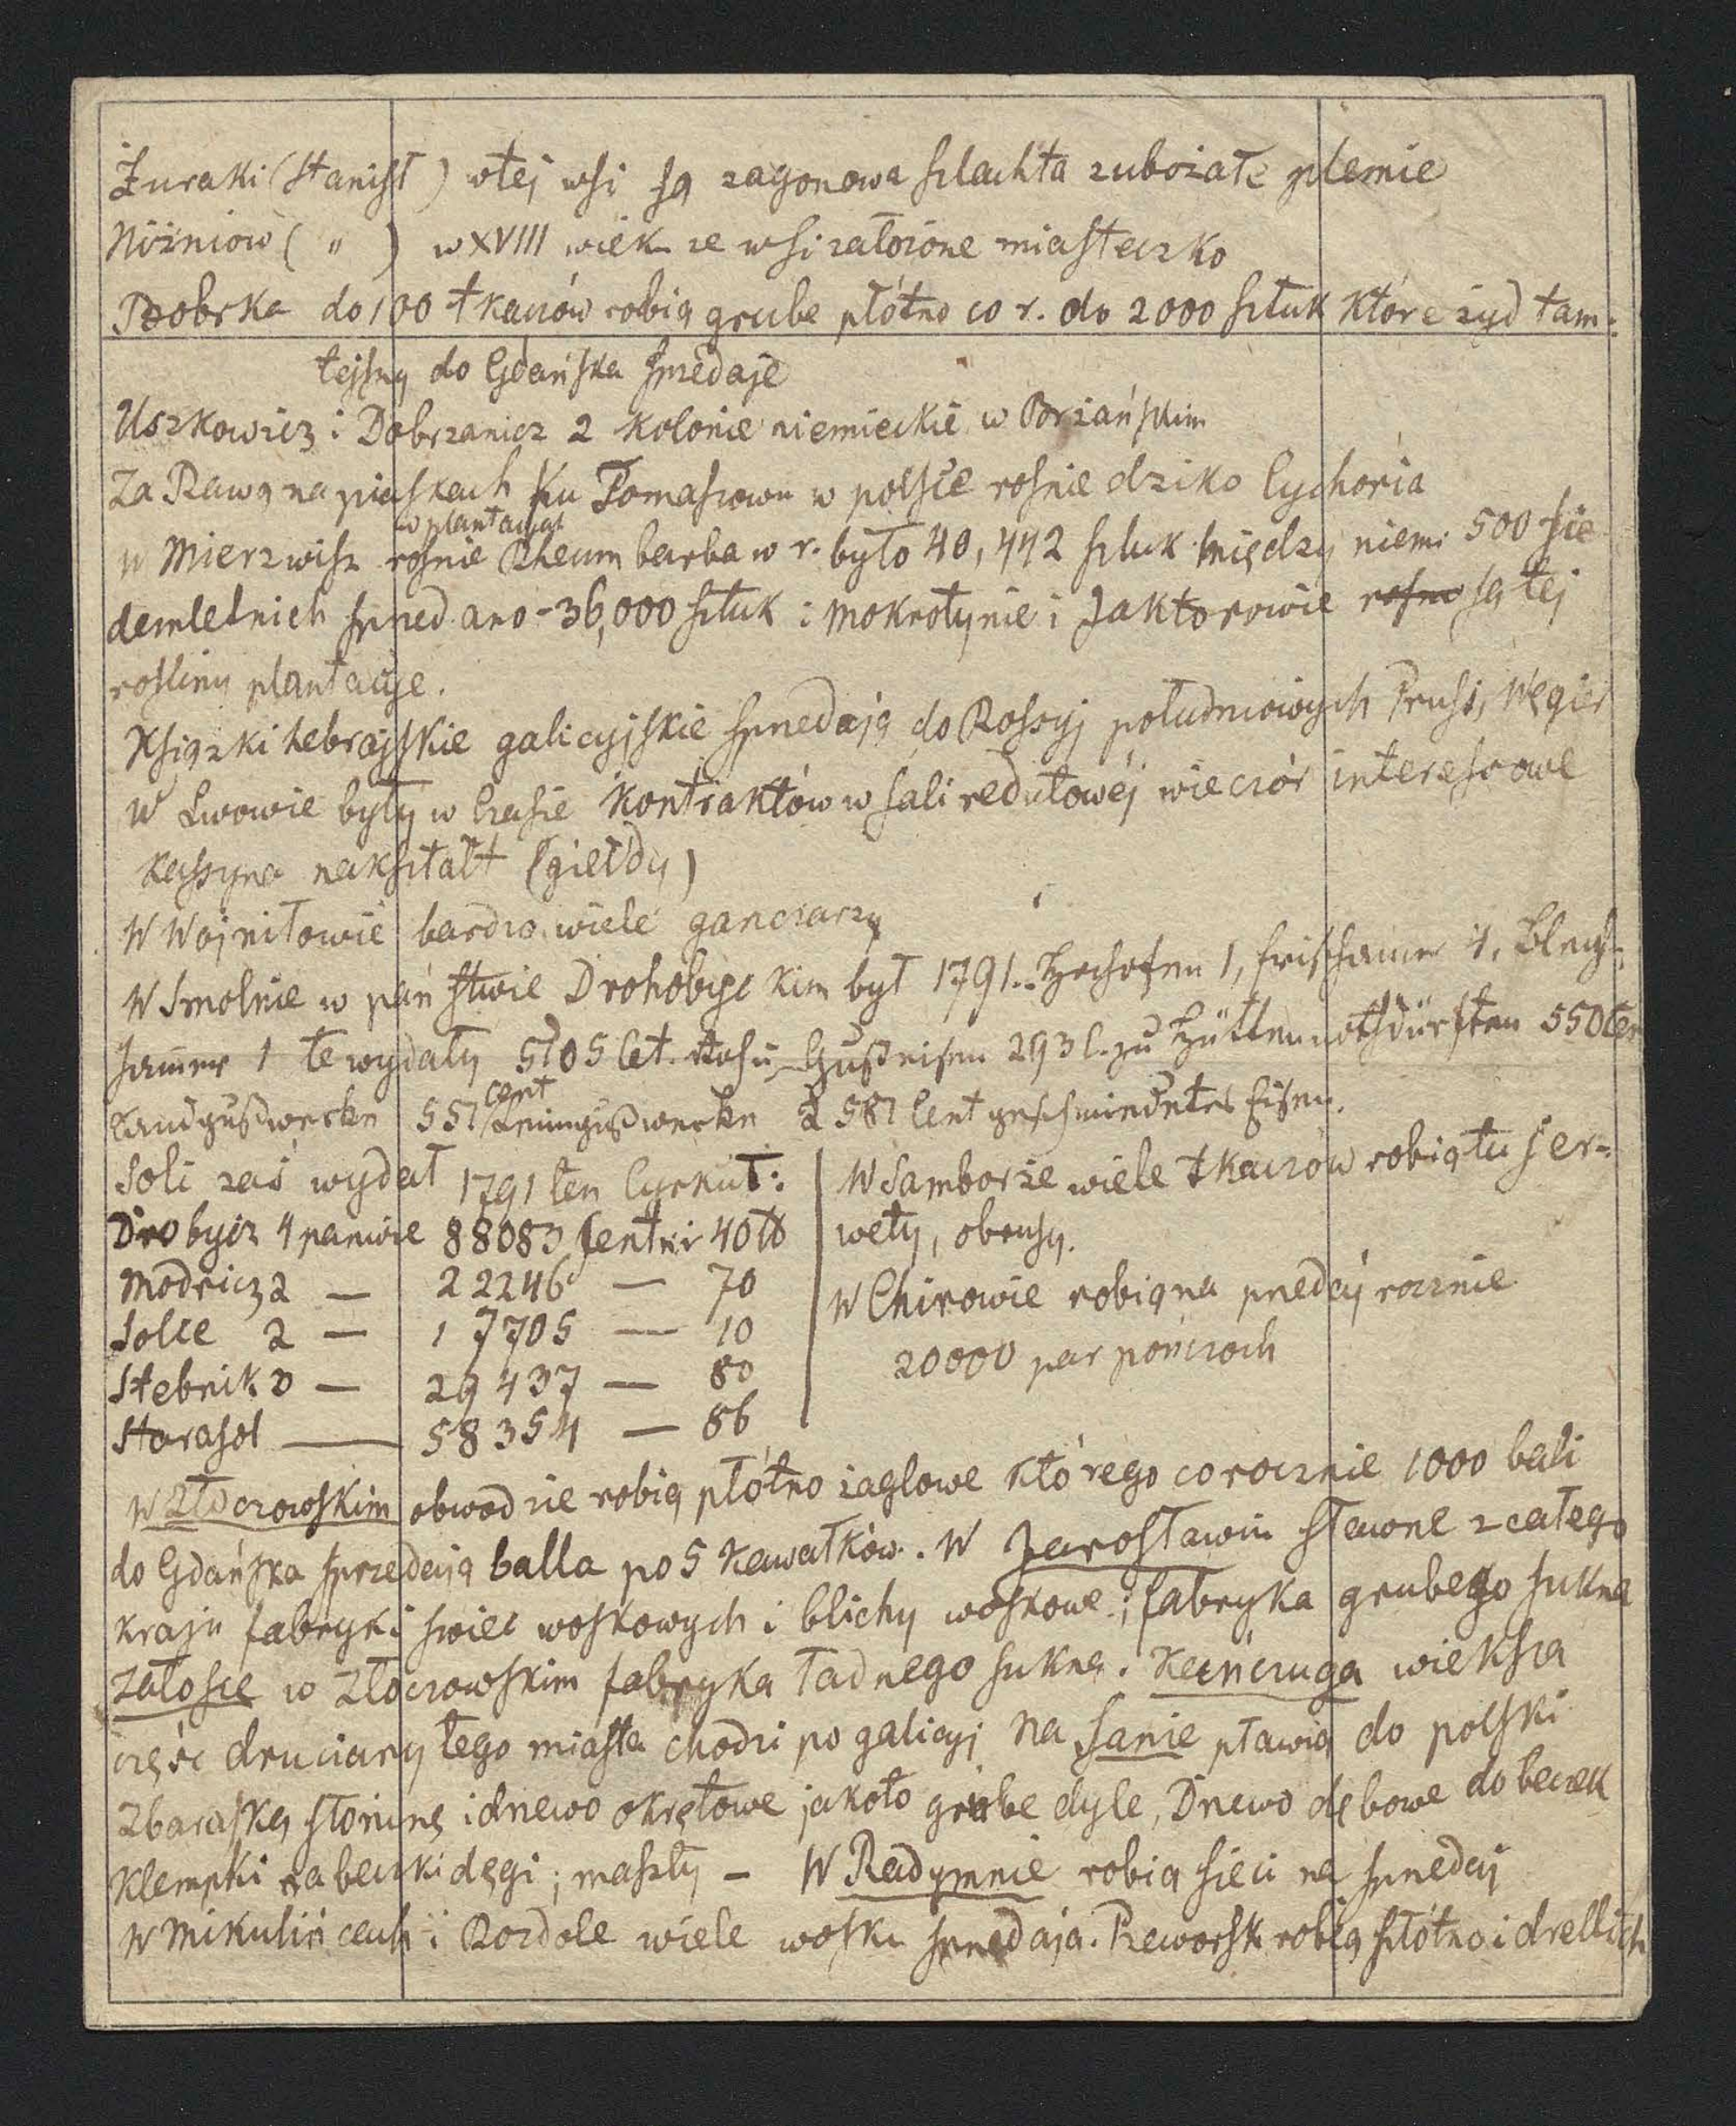 Żuraki (Stanisł) w tej wsi są zagonowa szlachta zubożałe plemie
Niżniow ( " ) w XVIII wiek ze wsi założone miasteczko
Bobrka do 100 tkaczów robią grube płótno co r. do 2000 sztuk które żyd tam-
tejszy do Gdańska sprzedaje
Uszkowicz i Dobrzanicz 2 kolonie niemieckie w Brzańskim
Za Rawą na piaskach ku Tomaszowu w polsce rośnie dziko Cychoria
w plantacyi
w Mierzwisz rośnie Rheum barba w r. było 40,442 sztuk między niemi 500 sie
demletnich sprzedano - 36,000 sztuk i Mokrotynie i Jaktorowie rosną są tej
rośliny plantacije.
Książki hebrajskie galicyjskie sprzedają do Rossyj południowych Pruss, Węgier
W Lwowie były w Czasie Kontraktów w sali redutowéj wieczór interessowe
Kassyna nakształt (giełdy)
W Wojniłowie bardzo wiele garnczarzy
W Smolnie w państwie Drohobyckim był 1791. Hochofen 1, Frischamer 4, Blech-
hamer 1 te wydały 5105 Cet. Gußeisen 293 C. zu Hüttennothdürften 550
Sandgußwerken 551 Cent Leimgußwerken 2 581 Cent geschmiedetes Eisen.
Soli zaś wydał 1791 ten Cyrkuł:
Drobycz 4 panwie 88083 Centnr 40 ℔
Modricz 2 — 22246 — 70
Solce 2 — 17705 — 10
Stebnik 3 — 29437 — 80
Starasol — 58354 — 86
W Samborze wiele tkaczów robią tu ser-
wety, obrusy.
W Chirowie robią na przedaj rocznie
20000 par pończoch
W Złoczowskim obwodzie robią płótno żaglowe którego corocznie 1000 bali
do Gdańska sprzedają balla po 5 Kawałków. W Jarosławiu sławne z całego
kraju fabryki swiec woskowych i blichy woskowe; fabryka grubego sukna
Załosce w Złoczowskim fabryka ładnego sukna. Kańczuga wieksza
część druciarzy tego miasta chodzi po galicyj Na Sanie pławią do polski
Zbaraską słoninę i drzewo okrętowe jakoto grube dyle, Drzewo dębowe do beczek
Klempki na beczki dęgi; maszty - W Radymnie robią sieci na sprzedaj
W Mikulińcach i Rozdole wiele wosku sprzedają. Przeworsk robią płótno i drellich